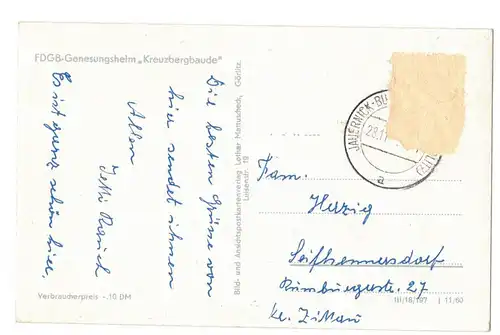 FDGB-Genesungsheim „Kreuzbergbaude"
Die besten Grüsse von
hier sendet ihnen
Allen
Jetti Rauch
Es ist ganz schön hier.
Verbraucherpreis -.10 DM
Bild- und Ansichtspostkartenverlag Lothar Manuscheck, Görlitz
Leisenstr. 19
JAUERNICK-BU
28.11
a
Fam.
Herzig
Seifhennersdorf
Rumburgerstr. 27
kr. Zittau
III/18/197 J 11/60